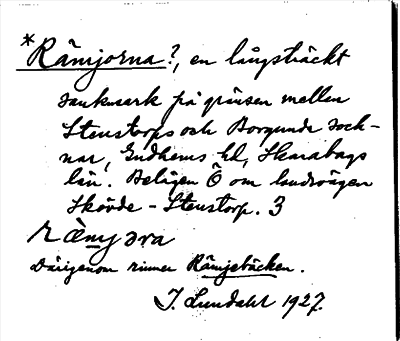 *Rämjorna?, en långsträckt
sankmark på gränsen mellan
Stenstorps och Borgunda sock-
nar, Gudhems hd, Skarabogs
län. Belägen Ö om landsvägen
Skövde - Stenstorp. 3
Därigenom rinner Rämjebäcken.
J. Lundahl 1927.